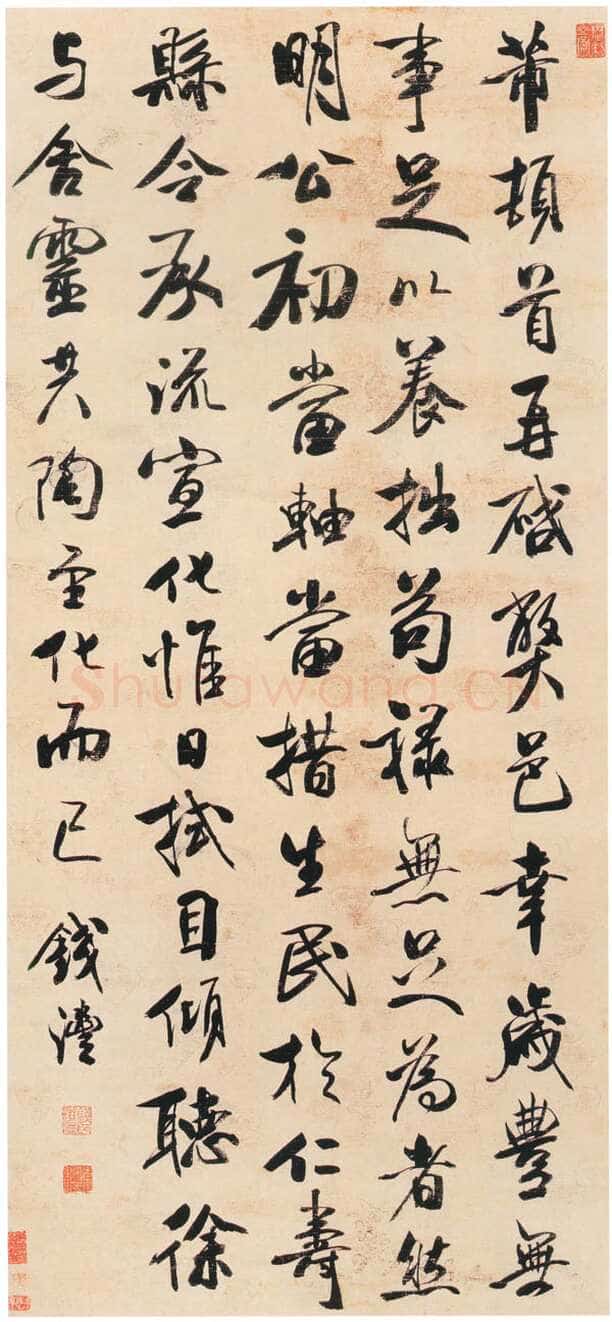 芾頓首再啓弊邑幸歲豐無
事足以養拙苟祿無足為者然
明公初當軸當措生民於仁壽
縣令承流宣化惟日拭目傾聽徐
与含靈共陶至化而已 錢灃
Shufawang.CN